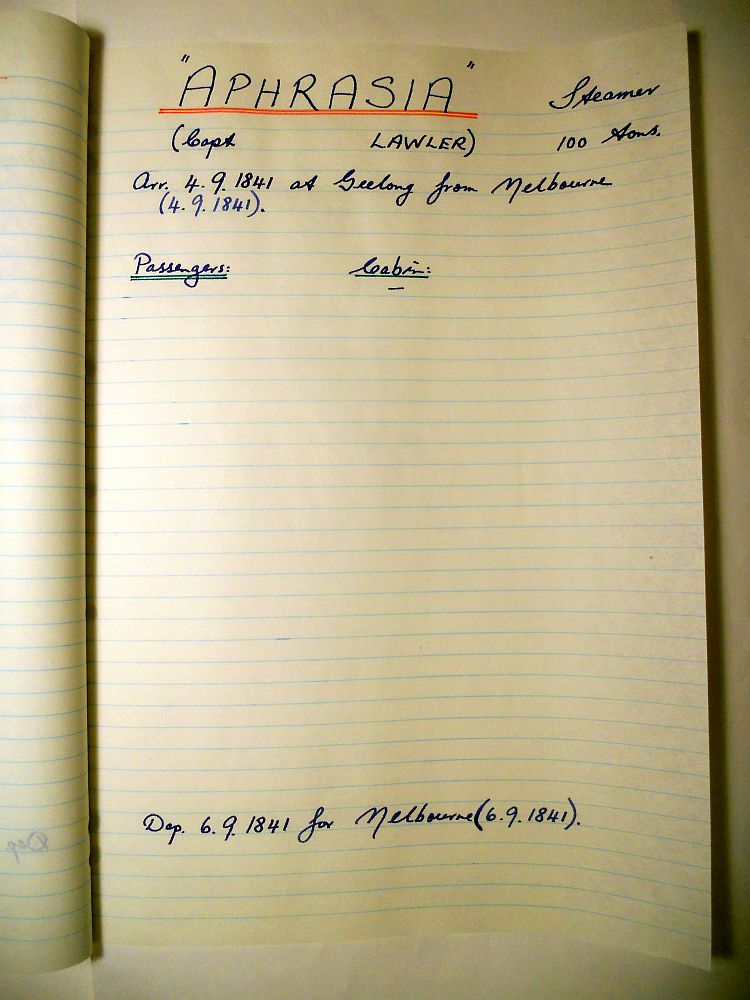 "APHRASIA" Steamer
(Capt LAWLER) 100 tons.
Arr. 4.9.1841 at Geelong from Melbourne
(4.9.1841).
Passengers: Cabin:
—
Dep. 6.9.1841 for Melbourne (6.9.1841).
Dep